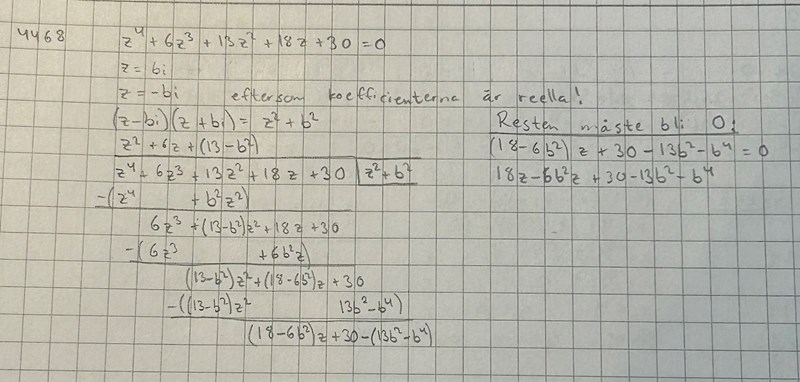 4468
z⁴ + 6z³ + 13z² + 18z + 30 = 0
z = bi
z = -bi eftersom koefficienterna är reella!
(z-bi)(z+bi) = z² + b²
z² + 6z + (13 - b²)
z⁴ + 6z³ + 13z² + 18z + 30 | z² + b²
-(z⁴ + b²z²)
6z³ + (13-b²)z² + 18z + 30
-(6z³ + 6b²z)
(13-b²)z² + (18-6b²)z + 30
-((13-b²)z² 13b² - b⁴)
(18-6b²)z + 30 - (13b² - b⁴)
Resten måste bli 0:
(18-6b²)z + 30 - 13b² - b⁴ = 0
18z - 6b²z + 30 - 13b² - b⁴